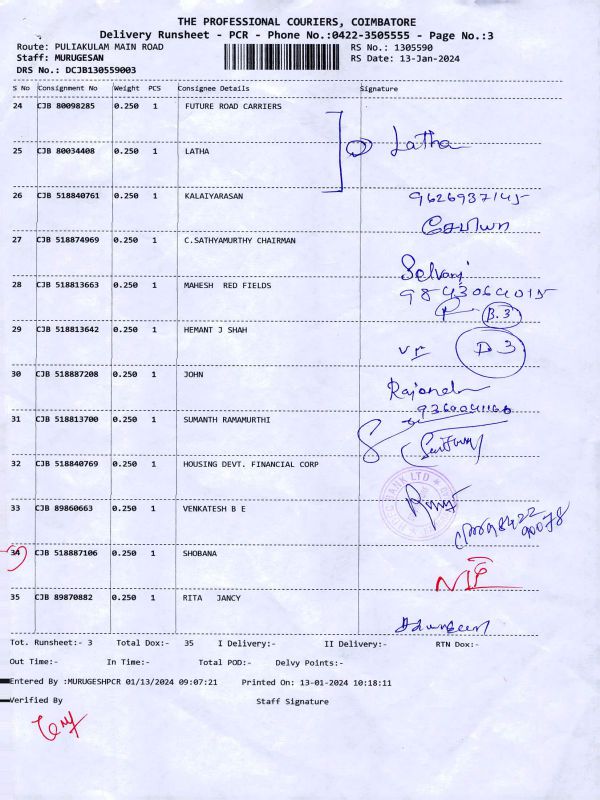 THE PROFESSIONAL COURIERS, COIMBATORE
Delivery Runsheet - PCR - Phone No.:0422-3505555 - Page No.:3
Route: PULIAKULAM MAIN ROAD RS No.: 1305590
Staff: MURUGESAN RS Date: 13-Jan-2024
DRS No.: DCJB130559003
S No Consignment No Weight PCS Consignee Details Signature
24 CJB 80098285 0.250 1 FUTURE ROAD CARRIERS
Latha
25 CJB 80034408 0.250 1 LATHA
26 CJB 518840761 0.250 1 KALAIYARASAN 9626937145
27 CJB 518874969 0.250 1 C.SATHYAMURTHY CHAIRMAN
Selvaraj
28 CJB 518813663 0.250 1 MAHESH RED FIELDS 9843064015
B.3
29 CJB 518813642 0.250 1 HEMANT J SHAH
D3
30 CJB 518887208 0.250 1 JOHN
31 CJB 518813700 0.250 1 SUMANTH RAMAMURTHI
32 CJB 518840769 0.250 1 HOUSING DEVT. FINANCIAL CORP
BANK LTD
33 CJB 89860663 0.250 1 VENKATESH B E
34 CJB 518887106 0.250 1 SHOBANA
35 CJB 89870882 0.250 1 RITA JANCY
Tot. Runsheet:- 3 Total Dox:- 35 I Delivery:- II Delivery:- RTN Dox:-
Out Time:- In Time:- Total POD:- Delvy Points:-
Entered By :MURUGESHPCR 01/13/2024 09:07:21 Printed On: 13-01-2024 10:18:11
Verified By Staff Signature